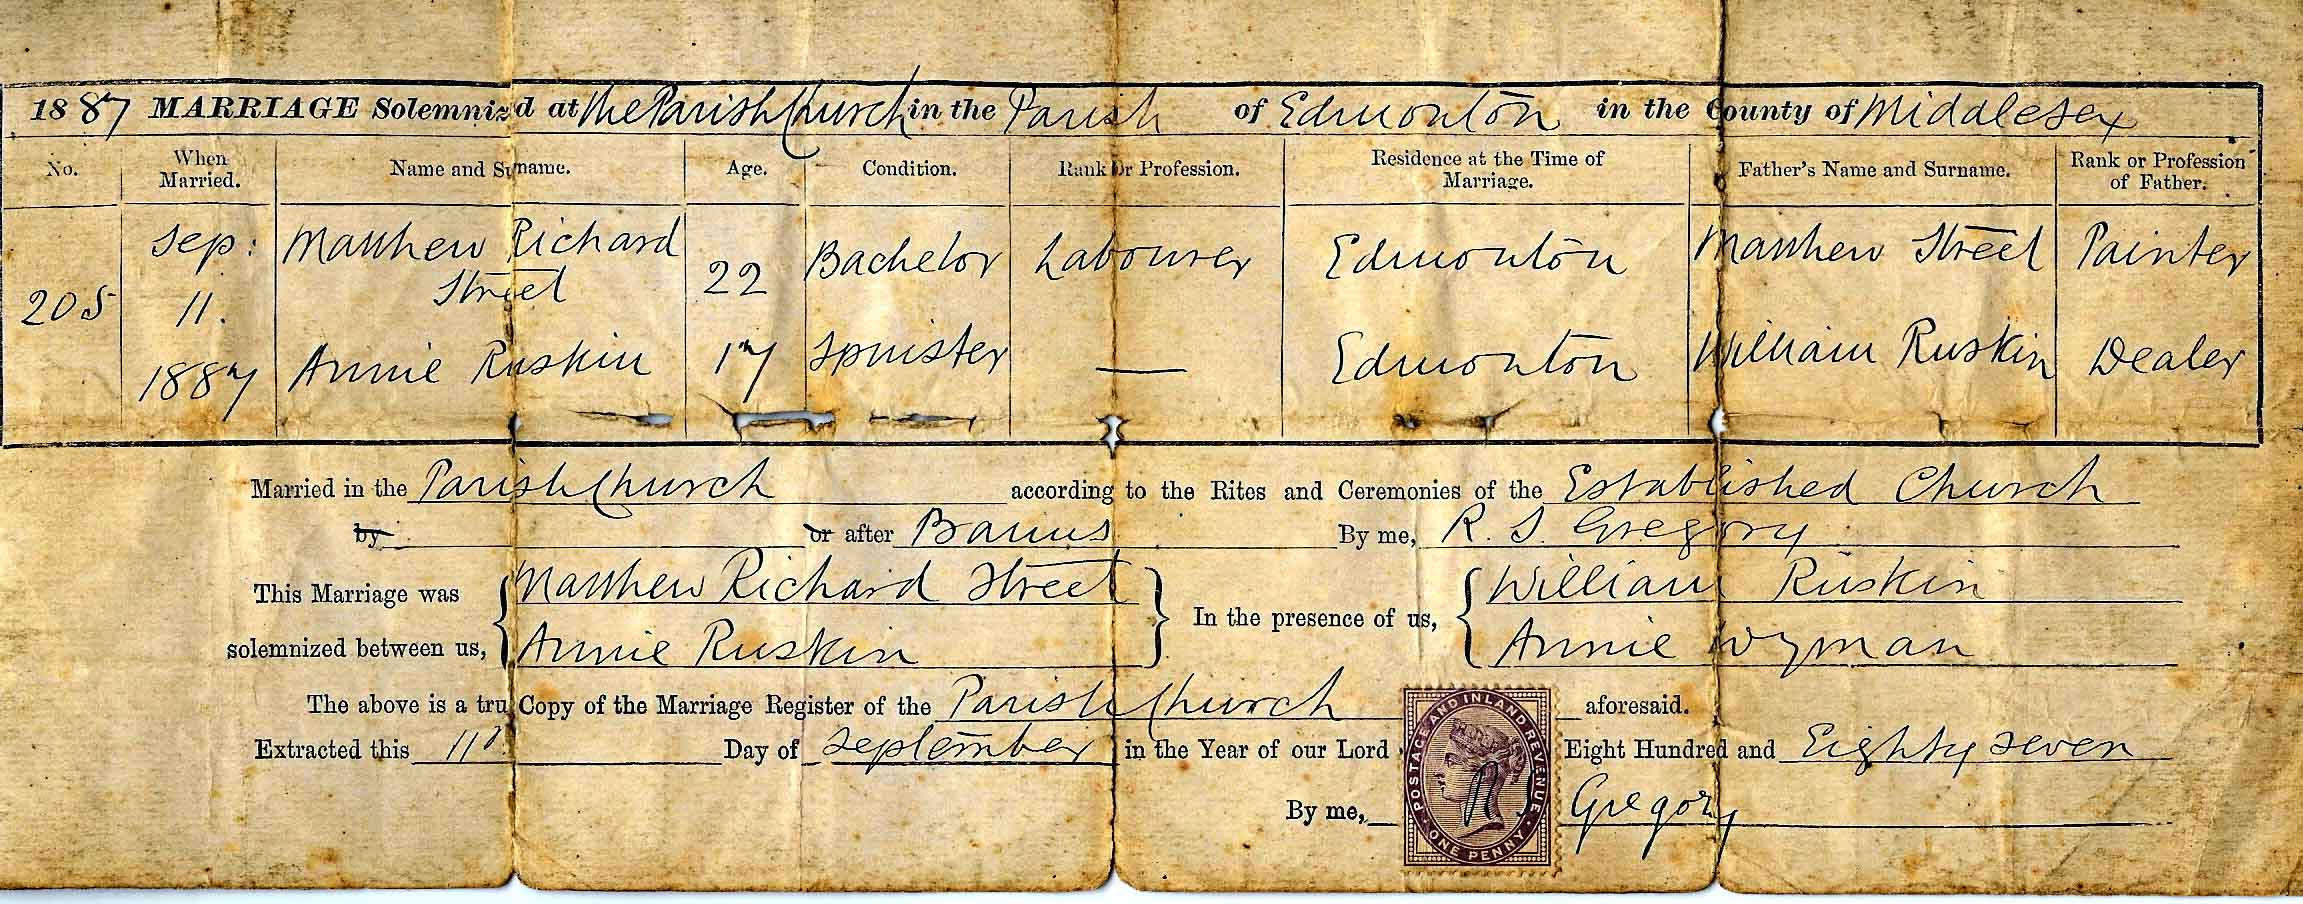 1887 MARRIAGE Solemnizd at the Parish Church in the Parish of Edmonton in the County of Middlesex
No. When Married. Name and Surname. Age. Condition. Rank or Profession. Residence at the Time of Marriage. Father's Name and Surname. Rank or Profession of Father.
205 Sep: 11. 1887 Matthew Richard Street 22 Bachelor Labourer Edmonton Matthew Street Painter
Annie Ruskin 17 Spinster — Edmonton William Ruskin Dealer
Married in the Parish Church according to the Rites and Ceremonies of the Established Church
by or after Banns By me, R. S. Gregory
This Marriage was solemnized between us, Matthew Richard Street In the presence of us, William Ruskin
Annie Ruskin Annie Wyman
The above is a tru Copy of the Marriage Register of the Parish Church aforesaid.
Extracted this 11 Day of September in the Year of our Lord Eight Hundred and Eighty seven
POSTAGE AND INLAND REVENUE
ONE PENNY
By me, R S Gregory